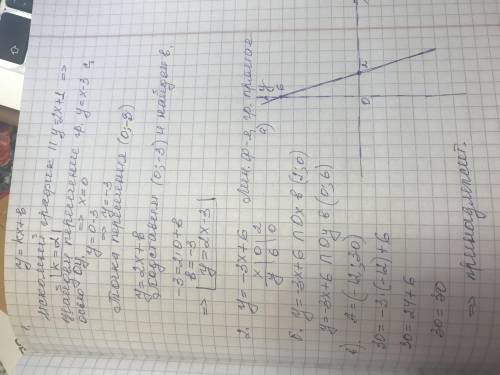 1. y = kx + в
Искомый график || y = 2x + 1 =>
=> k = 2
пересечение гр. y = x - 3 с
осью Oy => x = 0
y = 0 - 3
=> y = -3
Точка пересечения (0; -3)
y = 2x + в
Подставим (0; -3) и найдём в.
-3 = 2·0 + в
в = -3
=> y = 2x - 3
2. y = -3x + 6 лин. ф-я, гр. прямая
x 0 2
y 6 0
а)
y
6
0
2
б. y = -3x + 6 ∩ Ox в (2; 0)
y = -3x + 6 ∩ Oy в (0; 6)
в)
30 = -3·(-8) + 6
30 = 24 + 6
30 = 30
=> принадлежит.